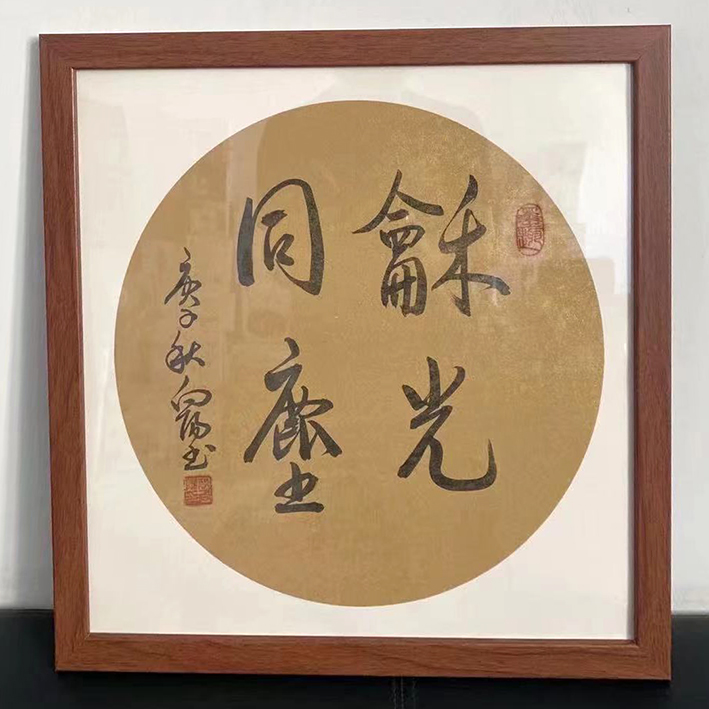 龢光
同塵
庚子秋书